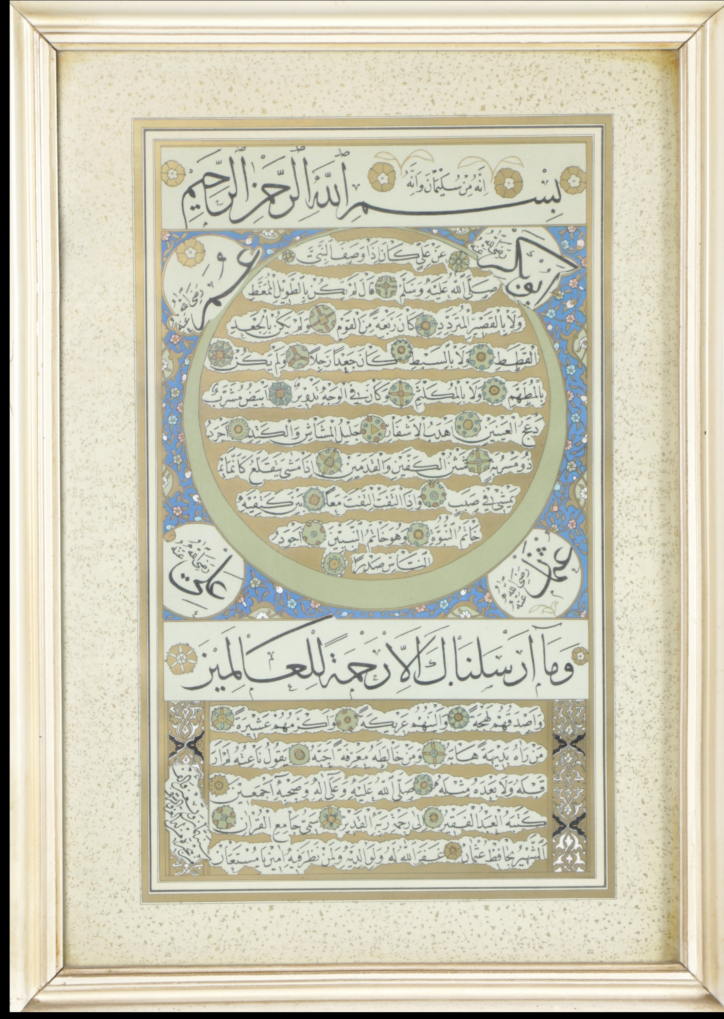 انه من سليمان وانه
بسم الله الرحمن الرحيم
ابو بكر رضي الله عنه
عمر رضي الله عنه
عن علي كان اذا وصف النبي
صلى الله عليه وسلم قال لم يكن بالطويل الممغط
ولا بالقصير المتردد وكان ربعة من القوم ولم يكن بالجعد
القطط ولا بالسبط كان جعدا رجلا ولم يكن
بالمطهم ولا بالمكلثم وكان في الوجه تدوير ابيض مشرب
ادعج العينين اهدب الاشفار جليل المشاش والكتد اجرد
ذو مسربة شثن الكفين والقدمين اذا مشى يتقلع كانما
يمشي في صبب واذا التفت التفت معا بين كتفيه
خاتم النبوة وهو خاتم النبيين اجود
الناس صدرا
عثمان رضي الله عنه
علي رضي الله عنه
وما ارسلناك الا رحمة للعالمين
واصدقهم لهجة والينهم عريكة واكرمهم عشيرة
من رآه بديهة هابه ومن خالطه معرفة احبه يقول ناعته لم ار
قبله ولا بعده مثله صلى الله عليه وعلى اله وصحبه اجمعين
كتبه العبد الفقير الى رحمة ربه القدير
الشهير بحافظ عثمان غفر الله له ولوالديه ولمن نظر فيه امين يا مستعان